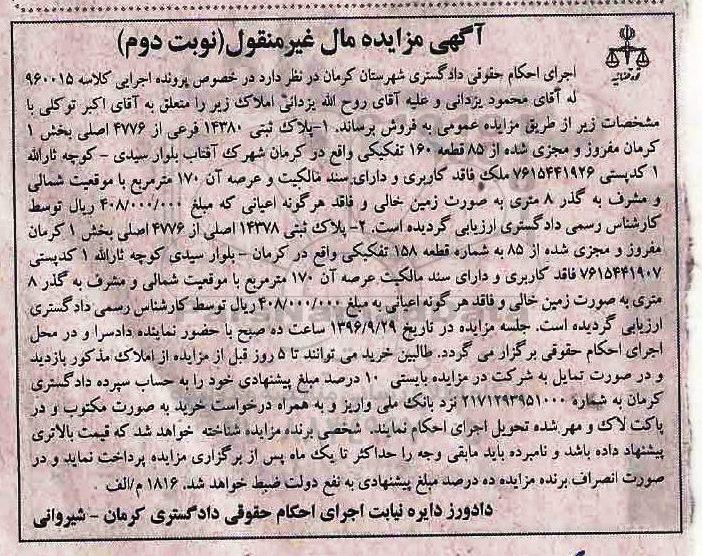 آگهی مزایده مال غیرمنقول(نوبت دوم)
قوه قضائیه
اجرای احکام حقوقی دادگستری شهرستان کرمان در نظر دارد در خصوص پرونده اجرایی کلاسه ۹۶۰۰۱۵
له آقای محمود یزدانی و علیه آقای روح الله یزدانی املاک زیر را متعلق به آقای اکبر توکلی با
مشخصات زیر از طریق مزایده عمومی به فروش برساند. ۱-پلاک ثبتی ۱۴۳۸۰ فرعی از ۴۷۷۶ اصلی بخش ۱
کرمان مفروز و مجزی شده از ۸۵ قطعه ۱۶۰ تفکیکی واقع در کرمان شهرک آفتاب بلوار سیدی - کوچه ثارالله
۱ کدپستی ۷۶۱۵۴۴۱۹۲۶ ملک فاقد کاربری و دارای سند مالکیت و عرصه آن ۱۷۰ مترمربع با موقعیت شمالی
و مشرف به گذر ۸ متری به صورت زمین خالی و فاقد هرگونه اعیانی که مبلغ ۴۰۸/۰۰۰/۰۰۰ ریال توسط
کارشناس رسمی دادگستری ارزیابی گردیده است. ۲- پلاک ثبتی ۱۴۳۷۸ اصلی از ۴۷۷۶ اصلی بخش ۱ کرمان
مفروز و مجزی شده از ۸۵ به شماره قطعه ۱۵۸ تفکیکی واقع در کرمان - بلوار سیدی کوچه ثارالله ۱ کدپستی
۷۶۱۵۴۴۱۹۰۷ فاقد کاربری و دارای سند مالکیت عرصه آن ۱۷۰ مترمربع با موقعیت شمالی و مشرف به گذر ۸
متری به صورت زمین خالی و فاقد هر گونه اعیانی به مبلغ ۴۰۸/۰۰۰/۰۰۰ ریال توسط کارشناس رسمی دادگستری
ارزیابی گردیده است. جلسه مزایده در تاریخ ۱۳۹۶/۹/۲۹ ساعت ده صبح با حضور نماینده دادسرا و در محل
اجرای احکام حقوقی برگزار می گردد. طالبین خرید می توانند تا ۵ روز قبل از مزایده از املاک مذکور بازدید
و در صورت تمایل به شرکت در مزایده بایستی ۱۰ درصد مبلغ پیشنهادی خود را به حساب سپرده دادگستری
کرمان به شماره ۲۱۷۱۲۹۳۹۵۱۰۰۰ نزد بانک ملی واریز و به همراه درخواست خرید به صورت مکتوب و در
پاکت لاک و مهر شده تحویل اجرای احکام نمایند. شخصی برنده مزایده شناخته خواهد شد که قیمت بالاتری
پیشنهاد داده باشد و نامبرده باید مابقی وجه را حداکثر تا یک ماه پس از برگزاری مزایده پرداخت نماید و در
صورت انصراف برنده مزایده ده درصد مبلغ پیشنهادی به نفع دولت ضبط خواهد شد. ۱۸۱۶ م/الف
دادورز دایره نیابت اجرای احکام حقوقی دادگستری کرمان - شیروانی